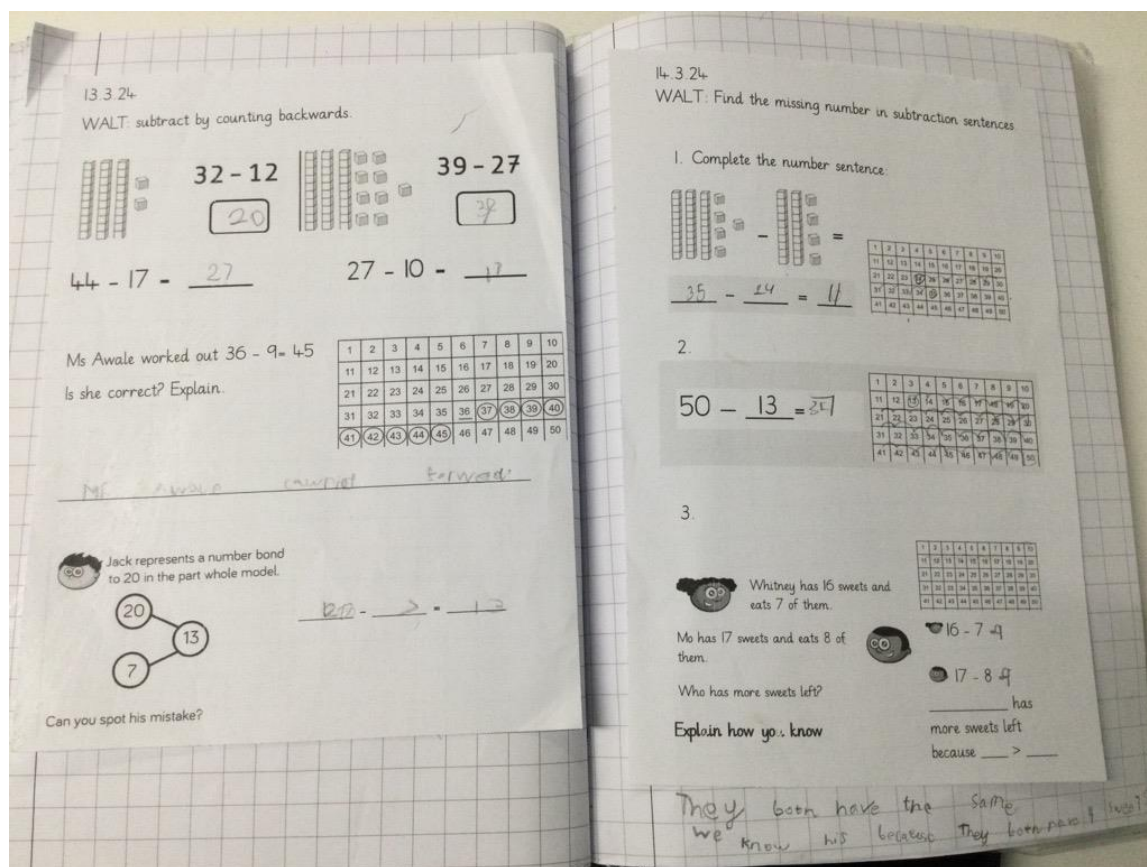 13.3.24
WALT: subtract by counting backwards.
32 - 12
39 - 27
20
44 - 17 = 27
27 - 10 =
Ms Awale worked out 36 - 9= 45
Is she correct? Explain.
1 2 3 4 5 6 7 8 9 10
11 12 13 14 15 16 17 18 19 20
21 22 23 24 25 26 27 28 29 30
31 32 33 34 35 36 37 38 39 40
41 42 43 44 45 46 47 48 49 50
Awale forwads
Jack represents a number bond
to 20 in the part whole model.
20
13
7
- =
Can you spot his mistake?
14.3.24
WALT: Find the missing number in subtraction sentences
1. Complete the number sentence
- =
1 2 3 4 5 6 7 8 9 10
11 12 13 14 15 16 17 18 19 20
21 22 23 24 25 26 27 28 29 30
31 32 33 34 35 36 37 38 39 40
41 42 43 44 45 46 47 48 49 50
35 - 24 = 11
2.
50 - 13 =
1 2 3 4 5 6 7 8 9 10
11 12 13 14 15 16 17 18 19 20
21 22 23 24 25 26 27 28 29 30
31 32 33 34 35 36 37 38 39 40
41 42 43 44 45 46 47 48 49 50
3.
1 2 3 4 5 6 7 8 9 10
11 12 13 14 15 16 17 18 19 20
21 22 23 24 25 26 27 28 29 30
31 32 33 34 35 36 37 38 39 40
41 42 43 44 45 46 47 48 49 50
Whitney has 16 sweets and
eats 7 of them.
16 - 7 = 9
Mo has 17 sweets and eats 8 of
them.
17 - 8 = 9
Who has more sweets left?
Explain how you know
has
more sweets left
because >
They both have the same
we know his because They both